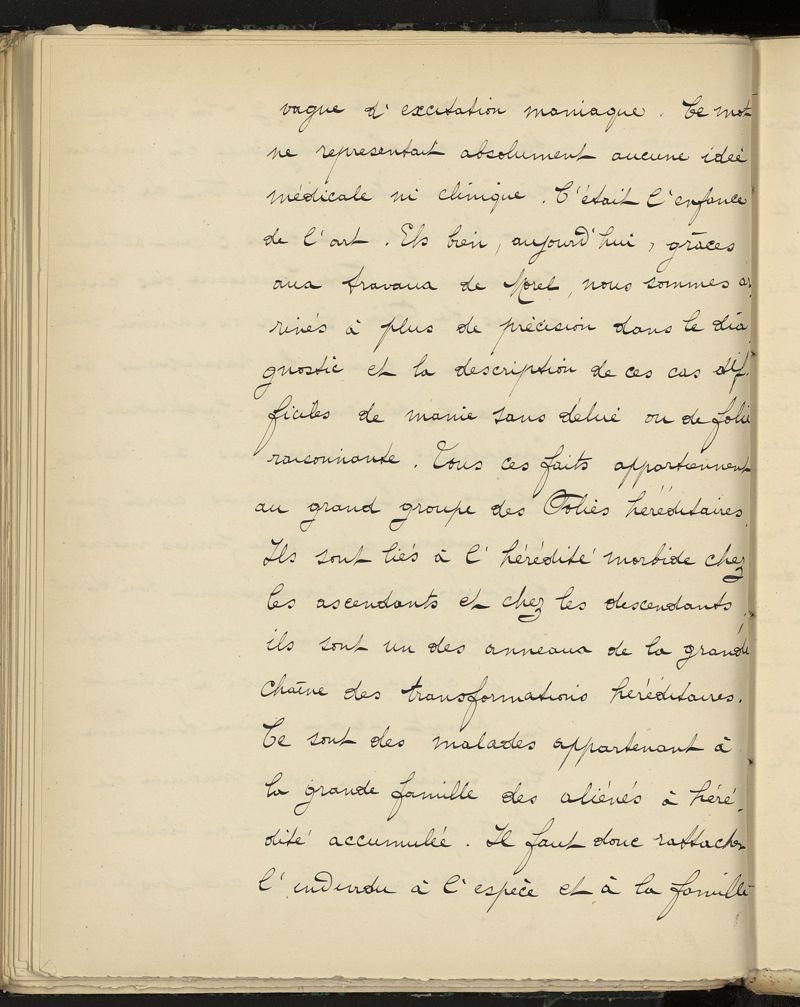 vague d'excitation maniaque. Ce mot
ne representait absolument aucune ideé
médicale ni clinique. C'était l'enfance
de l'art. Eh bien, aujourd'hui, grâces
aux travaux de Morel, nous sommes ar
rivés à plus de précision dans le dia
gnostic et la description de ces cas dif.
ficiles de manie sans délire ou de folie
raisonnante. Tous ces faits appartiennent
au grand groupe des Foliès héréditaires.
Ils sont liés à l'hérédité morbide chez
les ascendants et chez les descendants,
ils sont un des anneaux de la grande
chaîne des transformations héréditaires.
Ce sont des malades appartenant à
la grande famille des aliénés à héré.
dité accumuleé. Il faut donc rattacher
l'individu à l'espèce et à la famille